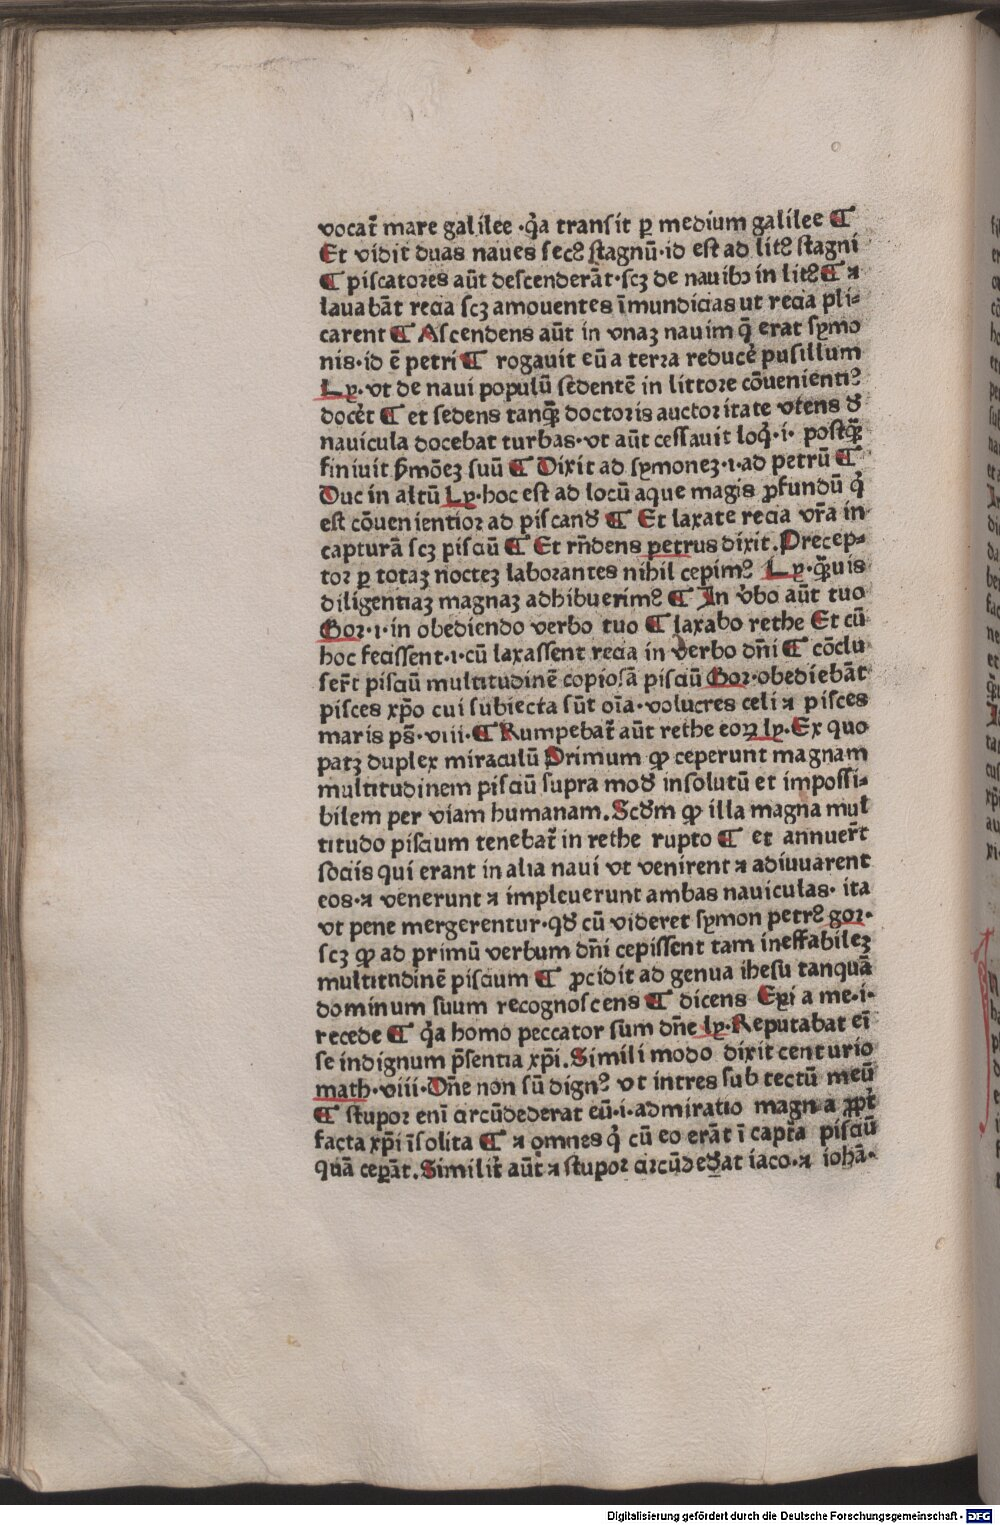 vocat᷑ mare galilee ·q̇a transit ꝑ medium galilee ¶
Et vidit duas naues secꝰ stagnū·id est ad litꝰ stagni
¶ piscatores aūt descenderāt·scꝫ de nauibꝫ in litꝰ ¶ ⁊
lauabāt recia scꝫ amouentes īmundicias ut recia pli⸗
carent ¶ Ascendens aūt in vnaꝫ nauim q̄ erat symo
nis·id ē petri ¶ rogauit eū a terra reduceꝛ̇ pusillum
Ly·vt de naui populū sedentē in littore cōuenientiꝰ
doceꝛ̇t ¶ et sedens tanꝙ̄ doctoris auctoritate vtens đ
nauicula docebat turbas·vt aūt cessauit loq̇·i· postꝙ̄
finiuit ẜmōeꝫ suū ¶ Dixit ad symoneꝫ·i·ad petrū ¶
Duc in altū Ly·hoc est ad locū aque magis ꝓfundū q̇
est cōuenientior ad piscanđ ¶ Et laxate recia vr̄a in
capturā scꝫ pisciū ¶ Et rn̄dens petrus dixit. Precep⸗
tor ꝑ totaꝫ nocteꝫ laborantes nihil cepimꝰ Ly·ꝙ̄uis
diligentiaꝫ magnaꝫ adhibuerimꝰ ¶ In v̓bo aūt tuo
Gor·i·in obediendo verbo tuo ¶ laxabo rethe Et cū
hoc fecissent·i·cū laxassent recia in verbo dn̄i ¶ cōclu
ser̄t pisciū multitudinē copiosā pisciū Gor·obediebāt
pisces xp̄o cui subiecta sūt oīa·volucres celi ⁊ pisces
maris ps̄·viii·¶ Rumpebat᷑ aūt rethe eoꝝ ly·Ex quo
patꝫ duplex miraculū Primum ꝙ ceperunt magnam
multitudinem pisciū supra mođ insolutū et impossi⸗
bilem per viam humanam. Scđm ꝙ illa magna mul
titudo piscium tenebat᷑ in rethe rupto ¶ et annuer̄t
sociis qui erant in alia naui vt venirent ⁊ adiuuarent
eos·⁊ venerunt ⁊ impleuerunt ambas nauiculas· ita
vt pene mergerentur·qđ cū videret symon petrꝰ gor·
scꝫ ꝙ ad primū verbum dn̄i cepissent tam ineffabileꝫ
multitudinē piscium ¶ ꝓcidit ad genua ihesu tanquā
dominum suum recognoscens ¶ dicens Exi a me·i·
recede ¶ q̇a homo peccator sum dn̄e ly·Reputabat eī
se indignum p̄sentia xp̄i. Simili modo dixit centurio
math·viii·Dn̄e non sū dignꝰ vt intres sub tectū meū
¶ stupor enī circūdederat eū·i·admiratio magna ꝓpt̓
facta xp̄i īsolita ¶ ⁊ omnes q̇ cū eo erāt ī capt᷑a pisciū
quā ceꝑāt. Similit̓ aūt ⁊ stupor circūdeđat iaco·⁊ iohā·
Digitalisierung gefördert durch die Deutsche Forschungsgemeinschaft - DFG